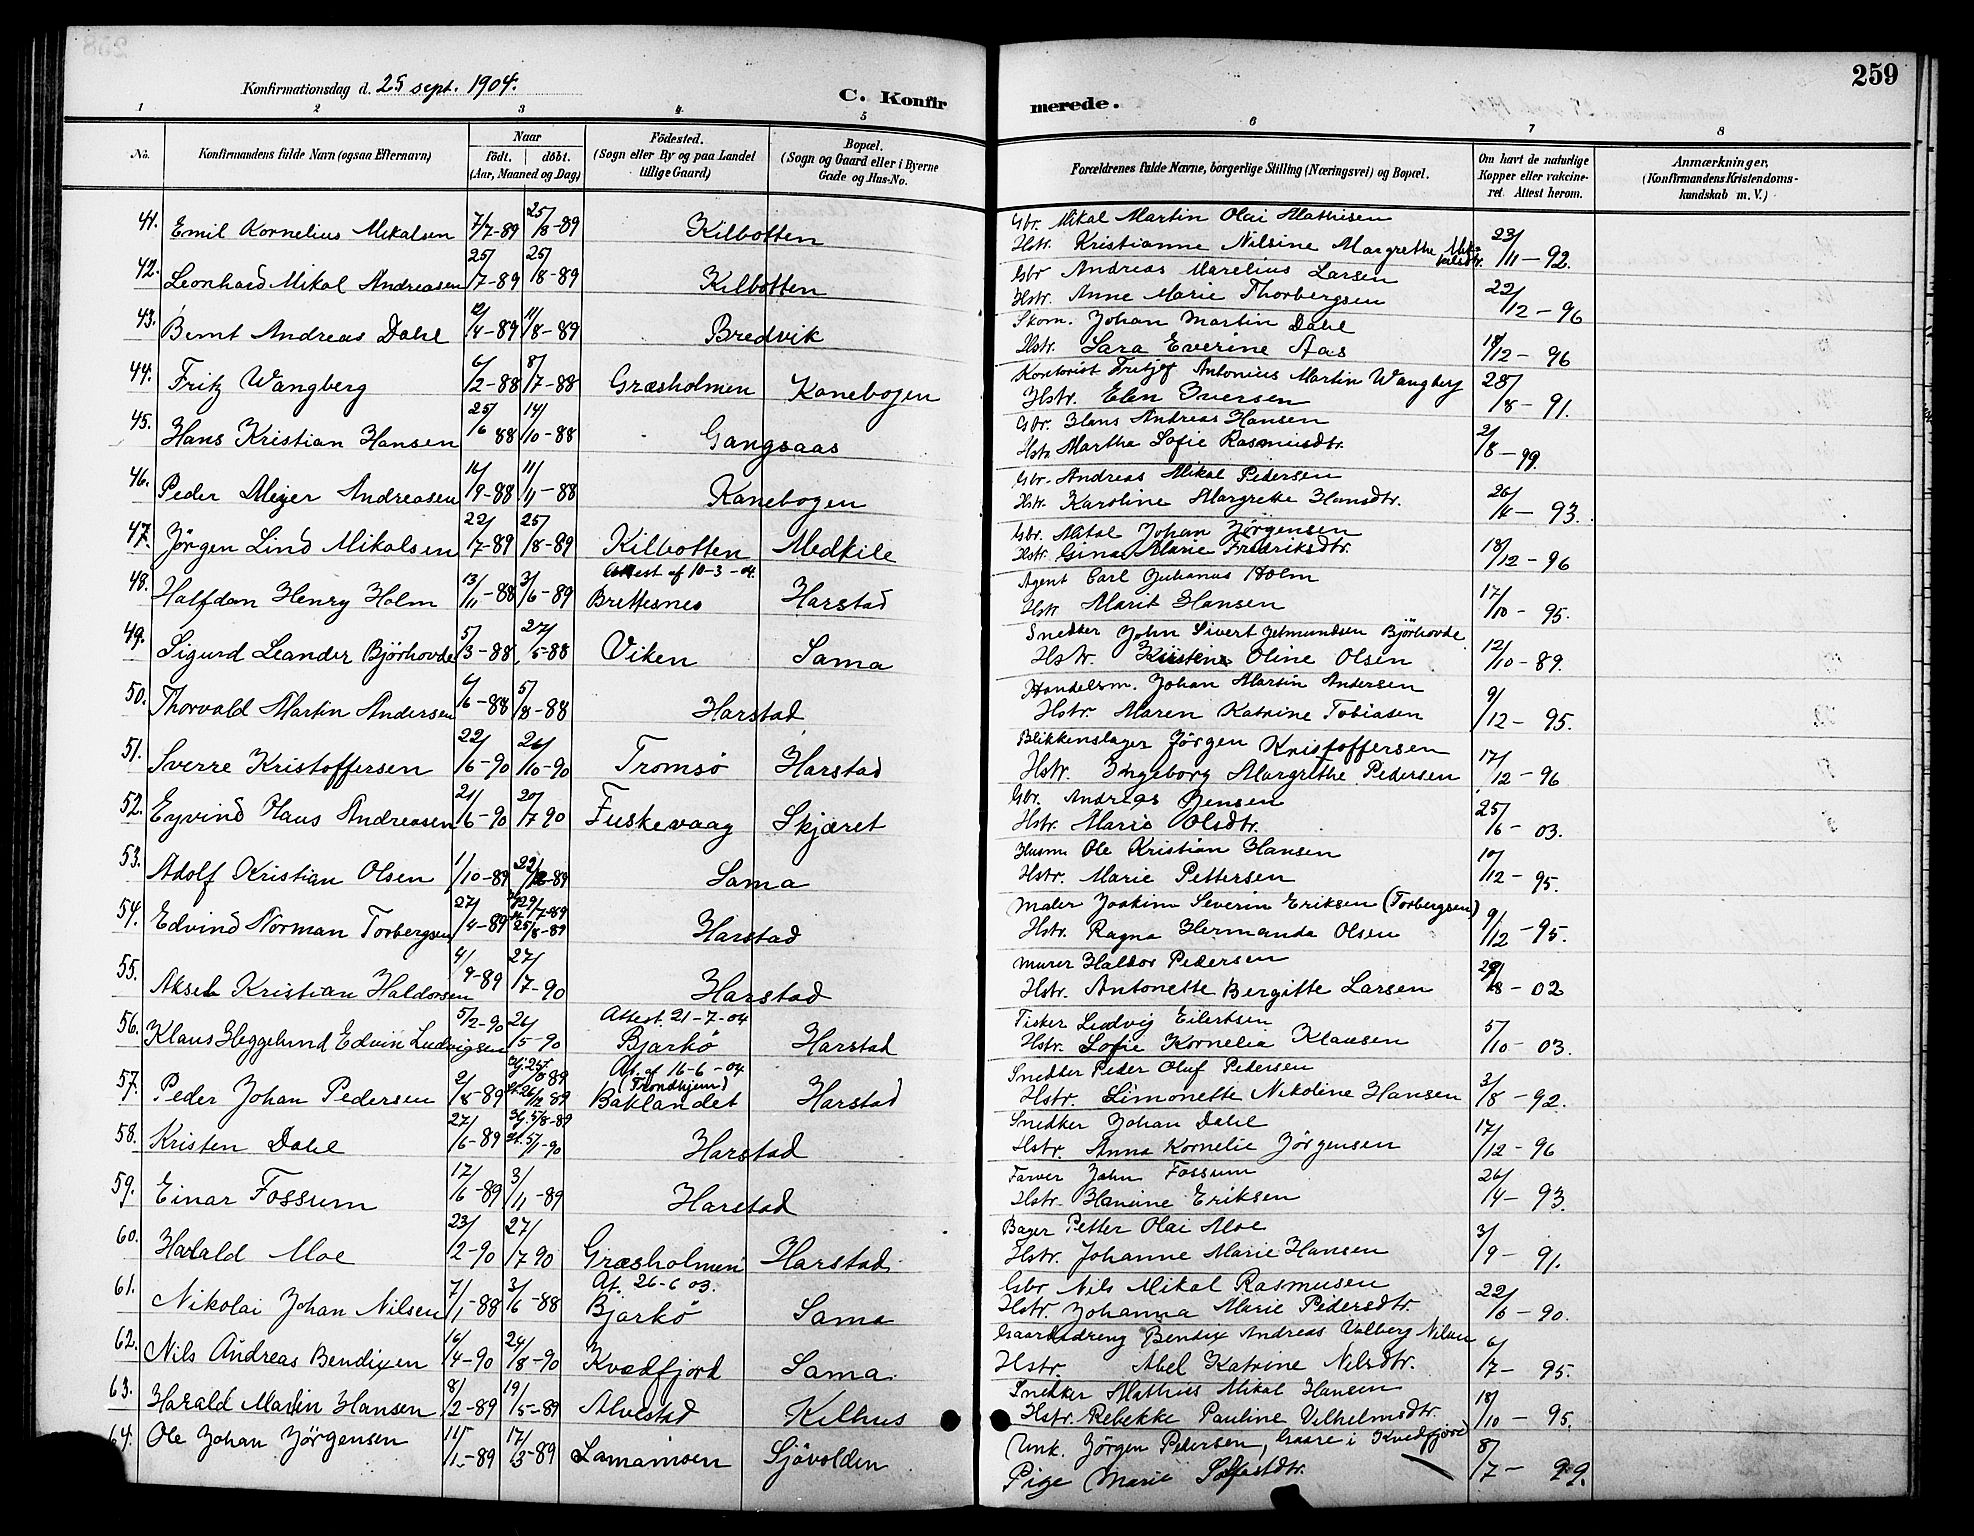 259
Konfirmationsdag d. 25 sept. 1904.
C. Konfirmerede.
1 2 3 4 5 6 7 8
No. Konfirmandens fulde Navn (ogsaa Efternavn) Naar födt. döbt. (Aar, Maaned og Dag) Födested. (Sogn eller By og paa Landet tillige Gaard) Bopæl. (Sogn og Gaard eller i Byerne Gade og Hus-No. Forældrenes fulde Navne, borgerlige Stilling (Næringsvei) og Bopæl. Om havt de naturlige Kopper eller vakcineret. Attest herom. Anmærkninger, (Konfirmandens Kristendomskundskab m. V.)
41. Emil Kornelius Mikalsen 7/7-89 25/8-89 Kilbotten Gbr. Mikal Martin Olai Mathisen
Hstr. Kristianne Nilsine Margrethe 23/11-92.
42. Leonhard Mikal Andreasen 25/7-89 25/8-89 Kilbotten Gbr Andreas Marelius Larsen
Hstr. Anne Marie Thorbergsen 22/12-96
43. Bernt Andreas Dahl 12/4-89 11/8-89 Bredvik Skom. Johan Martin Dahl
Hstr. Sara Everine Aas 18/12-96
44. Fritz Wangberg 6/2-88 8/7-88 Græsholmen Kanebogen Kontorist Fritjof Antonius Martin Wangberg
Hstr. Elen Iversen 28/8-91.
45. Hans Kristian Hansen 25/6 88 14/10-88 Gangsaas Gbr. Hans Andreas Hansen
Hstr Martha Sofie Rasmusdtr. 2/8-99.
46. Peder Meyer Andreasen 16/9-88 11/11-88 Kanebogen Gbr. Andreas Mikal Pedersen
Hstr. Karoline Margrethe Hansdtr. 26/4-93.
47. Jörgen Lind Mikalsen 22/7-89 25/8-89 Kilbotten Medkile Gbr. Mikal Johan Jörgensen
Hstr. Gina Marie Fredriksdtr. 18/12-96
48. Halfdan Henry Holm 13/11-88 3/6-89 Attest af 10-3-04. Brettesnes Harstad Agent Carl Johanus Holm
Hstr Marit Hansen 17/10-95.
49. Sigurd Leander Björhovde 5/3-88 27/5-88 Viken Sama Snedker John Sivert Björhovde
Hstr. Kristine Oline Olsen 12/10-89.
50. Thorvald Martin Andersen 6/6-88 5/8-88 Harstad Handelsm. Johan Martin Andersen
Hstr. Maren Katrine Tobiasen 9/12-95.
51. Sverre Kristoffersen 22/6-90 26/10-90 Tromsö Harstad Blikkenslager Jörgen Kristoffersen
Hstr. Ingeborg Margrethe Pedersen 17/12-96
52. Eyvind Olaus Andreasen 21/6-90 20/7 90 Fuskevaag Skjæret Gbr. Andreas Jensen
Hstr. Marie Olsdtr. 25/6-03.
53. Adolf Kristian Olsen 1/10-89 22/12-89 Sama Husm. Ole Kristian Hansen
Hstr. Marie Pettersen 10/12-95.
54. Edvind Norman Torbergsen 27/4-89 29/7-89 25/8-89 Harstad Maler Joakim Severin Eriksen (Torbergsen)
Hstr. Ragna Hermanda Olsen 9/12-95.
55. Aksel Kristian Haldorsen 4/9-89 27/7-90 Harstad Murer Haldor Pedersen
Hstr. Antonette Bergitte Larsen 29/8-02
56. Klaus Heggelund Edvin Ludvigsen 5/2-90 26/5-90 Attest. 21-7-04 Bjarkö Harstad Fisker Ludvig Eilertsen
Hstr. Sofie Kornelia Klausen 5/10-03.
57. Peder Johan Pedersen 2/8-89 Hj. 25/8 89 St. 26/12 89 At. af 16-6-04 (Trondhjem) Baklandet Harstad Snedker Peder Oluf Pedersen
Hstr. Simonette Nikoline Hansen 3/8-92.
58. Kristen Dahl 27/6-89 Hj. 5/8-89 St. 5/1-90 Harstad Snedker Johan Dahl
Hstr. Anna Kornelie Jörgensen 17/12-96
59. Einar Fossum 17/6-89 3/11-89 Harstad Farver John Fossum
Hstr. Hanine Eriksen 26/4-93.
60. Harald Moe 23/2-90 27/7 90 Græsholmen Harstad. Bager Petter Olai Moe
Hstr. Johanne Marie Hansen 3/9-91.
61. Nikolai Johan Nilsen 7/1-88 3/6-88 At. 26-6 03. Bjarkö Sama Gbr Nils Mikal Rasmusen
Hstr. Johanna Marie Pedersdtr. 22/6-90.
62. Nils Andreas Bendixen 6/4-90 24/8-90 Kvædfjord Sama. Gaardsdreng Bendix Andreas Valberg Nilsen
Hstr. Abel Katrine Nilsdtr. 6/7-95.
63. Harald Martin Hansen 8/2-89 19/5-89 Alvestad Kilhus Snedker Mathias Mikal Hansen
Hstr. Rebekke Pauline Vilhelmsdtr. 18/10-95.
64. Ole Johan Jörgensen 11/1-89 17/3-89 Samamoen Sjövolden Unk. Jörgen Petersen, Gaare i Kvedfjord
Pige Marie 8/7-99.